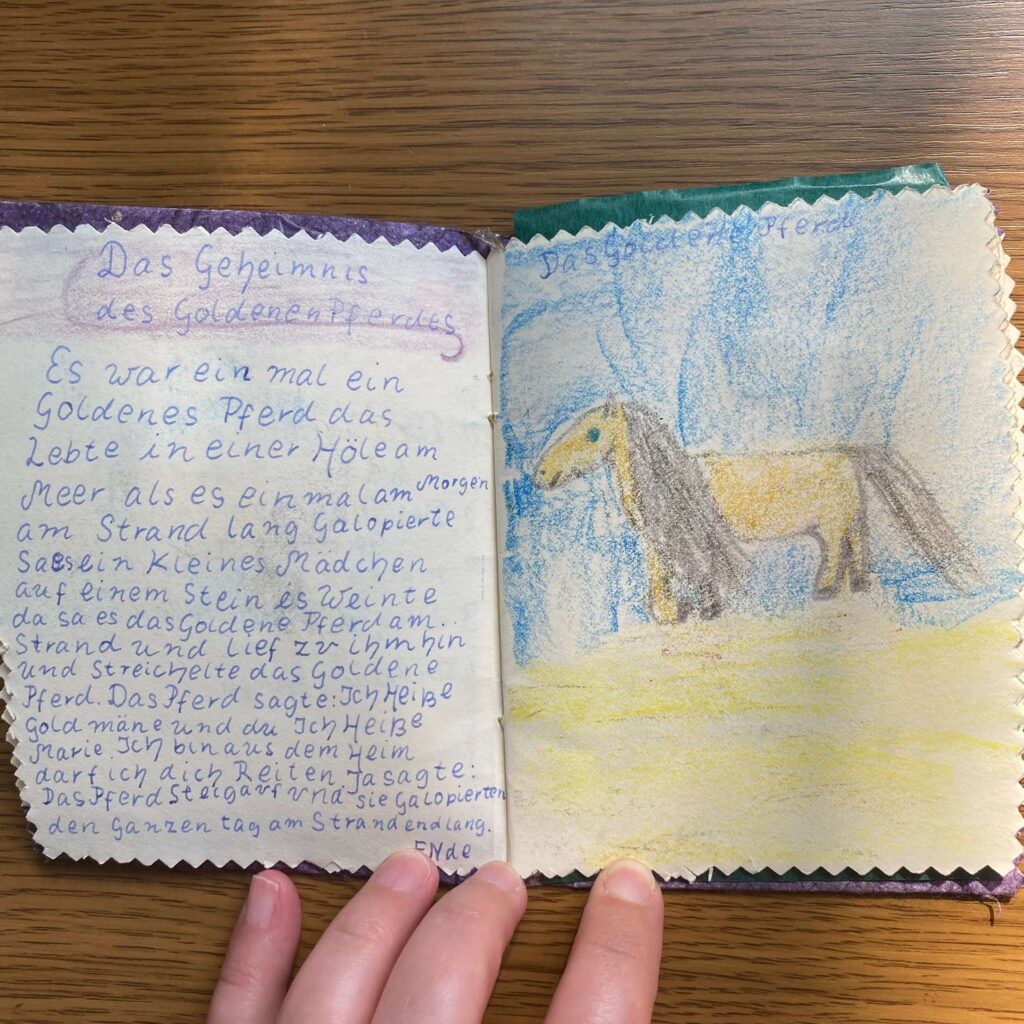 Das Geheimnis
des Goldenen Pferdes
Es war ein mal ein
Goldenes Pferd das
Lebte in einer Höle am
Meer als es einmal am Morgen
am Strand lang Galopierte
Sas ein Kleines Mädchen
auf einem Stein es Weinte
da sa es das Goldene Pferd am
Strand und lief zu ihm hin
und Streichelte das Goldene
Pferd. Das Pferd sagte: Ich Heiße
Gold mäne und du Ich Heiße
Marie. Ich bin aus dem Heim
darf ich dich Reiten Ja sagte:
Das Pferd Steig auf und sie Galopierten
den Ganzen tag am Strand endlang.
ENde
Das Goldene Pferd